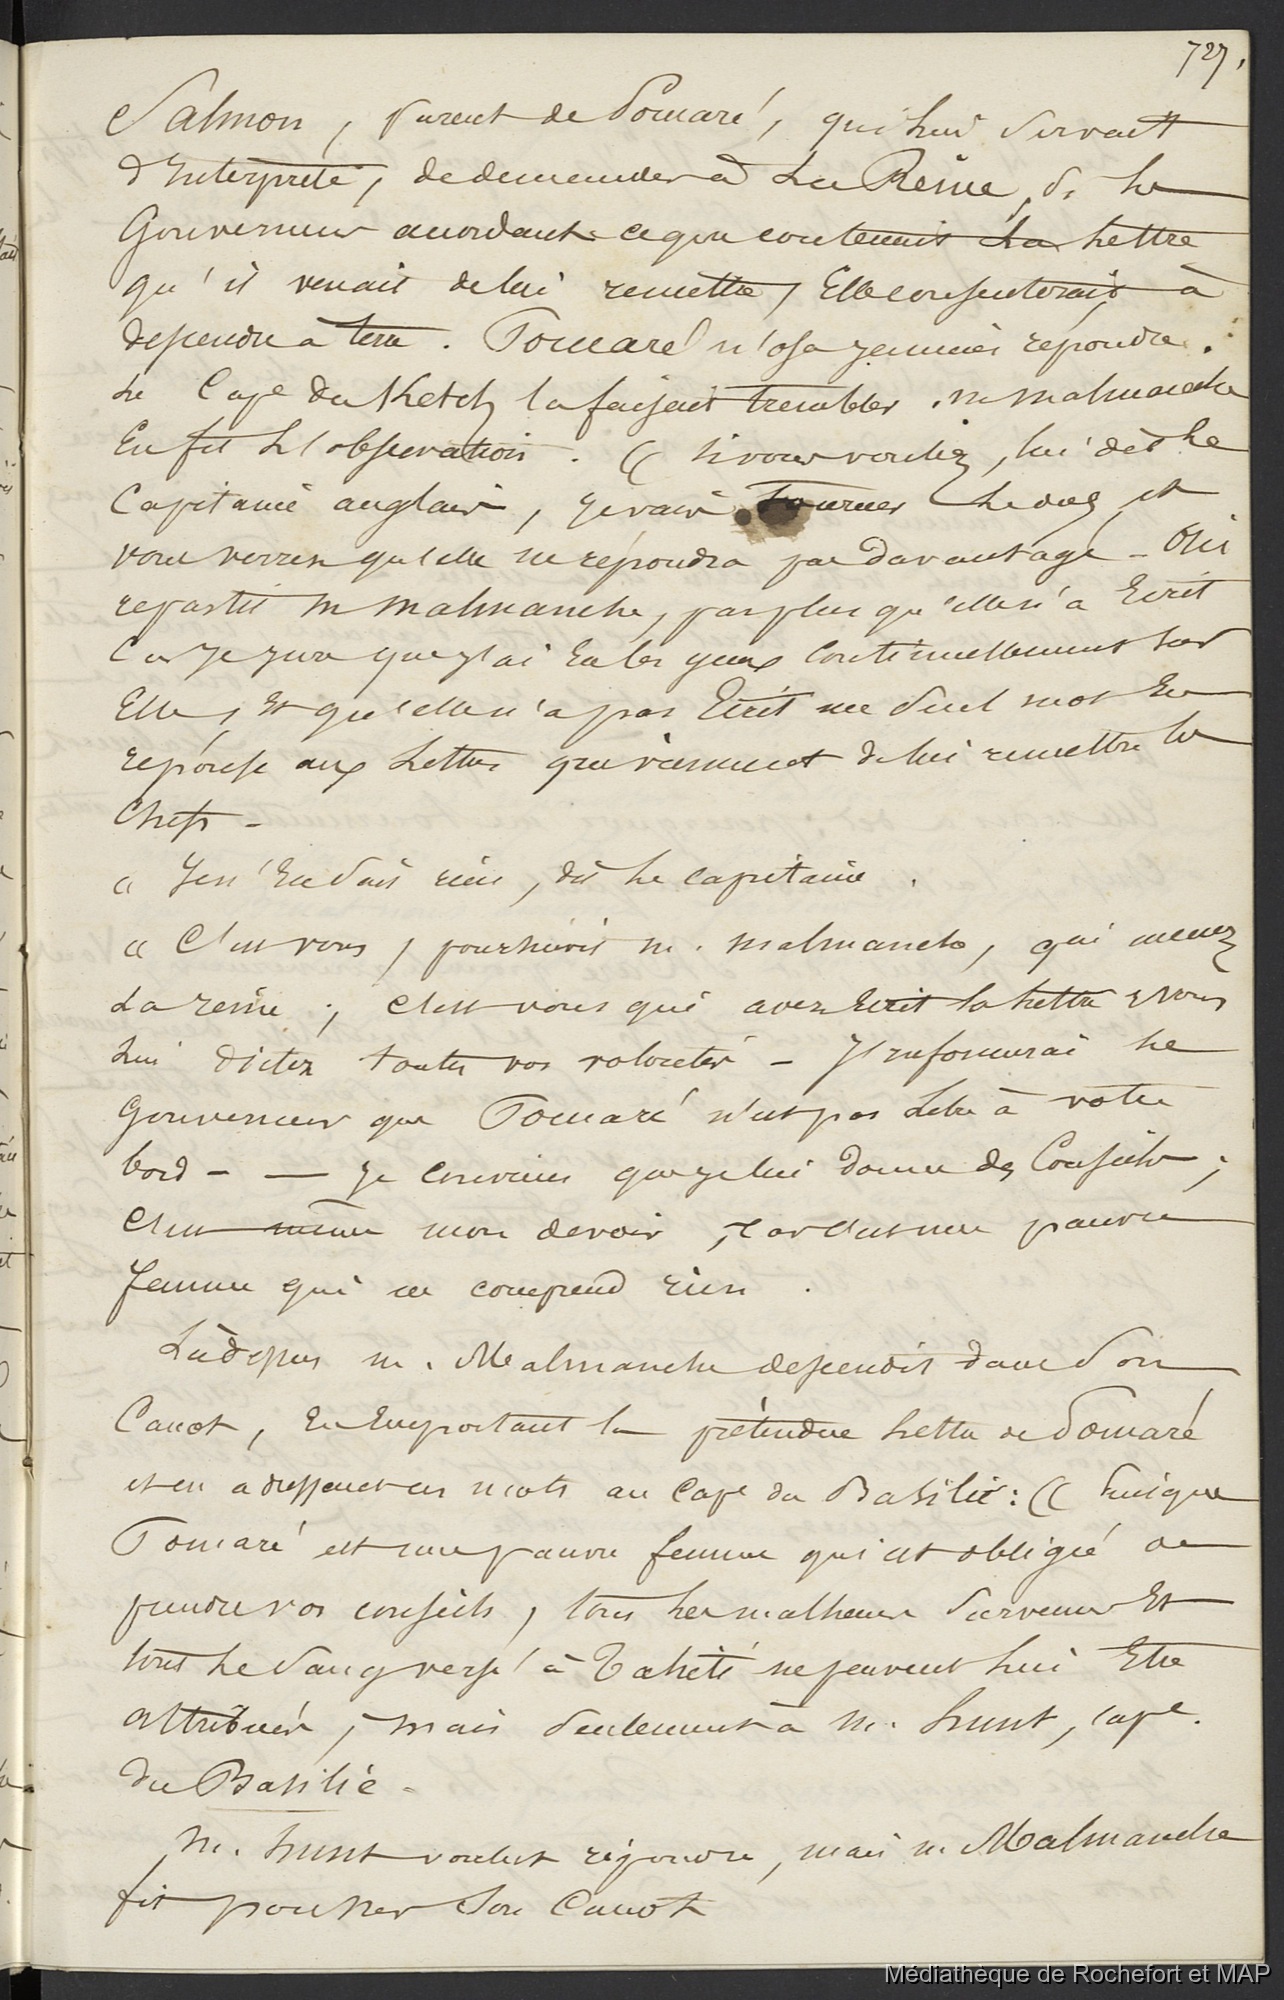 727.
Salmon, parent de Pomaré, qui lui servait
d'Interprète, de demander à La Reine, si le
Gouverneur accordant ce que contenait La Lettre
qu'il venait de lui remettre, Elle consentirait à
descendre à terre. Pomaré n'osa jamais répondre.
Le Cape du Ketch la faisait trembler. M Malmanche
En fit L'observation. (( Si vous voulez, lui dit Le
Capitaine anglais, je vais tourner Le dos, et
vous verrez qu'elle ne répondra pas davantage – Oui
repartit M Malmanche, pas plus qu'elle n'a Ecrit
Car je jure que j'ai Eu les yeux continuellement sur
Elle, Et qu'elle n'a pas Ecrit un seul mot En
réponse aux Lettres que viennent de lui remettre les
Chefs –
« Je n'En sais rien, dit Le capitaine.
« C'est vous, poursuivit m. Malmanche, qui menez
La reine ; c'est vous qui avez Ecrit la Lettre & vous
Lui dictez toutes vos volontés – J'informerai Le
Gouverneur que Pomaré n'est pas Libre à votre
bord – — Je conviens que je lui donne des Conseils ;
C'est même mon devoir, car c'est une pauvre
femme qui ne comprend rien.
Là dessus m. Malmanche descendit dans son
Canot, En Emportant la prétendue Lettre de Pomaré
et en adressant ces mots au Cape du Basilic : (( Puisque
Pomaré est une pauvre femme qui est obligée de
prendre vos conseils, tous Les malheurs survenus Et
tout Le sang versé à Tahiti ne peuvent Lui Etre
attribués, mais seulement à M. Hunt, cape.
du Basilic –
M. Hunt voulut répondre, mais m. Malmanche
fit pousser Son Canot
Médiathèque de Rochefort et MAP